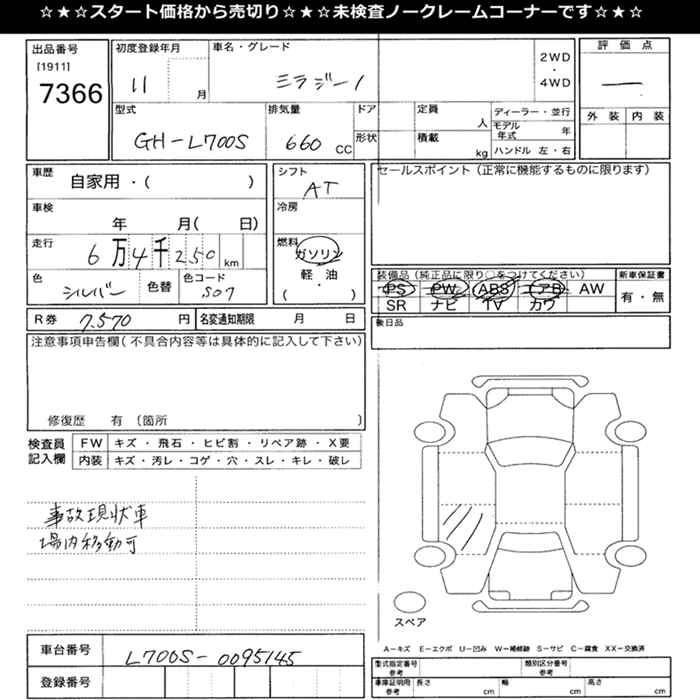 ☆★☆★スタート価格から売切り☆★☆★未検査ノークレームコーナーです☆★☆
出品番号
[1911]
7366
初度登録年月
11 月
車名・グレード
ミラジーノ
2WD
・
4WD
評価点
―
外装 内装
型式
GH-L700S
排気量
660 CC
ドア
形状
定員
人
積載
kg
ディーラー・並行
モデル年式 年
ハンドル 左・右
車歴
自家用・( )
車検
年 月( 日)
走行
6万4千250km
色
シルバー
色替
色コード
S07
シフト
AT
冷房
燃料
ガソリン
軽・油
( )
セールスポイント(正常に機能するものに限ります)
装備品(純正品に限り○をつけてください)
PS PW ABS エアB AW
SR ナビ TV カワ
新車保証書
有・無
後日品
R券 7,570 円
名変通知期限 月 日
注意事項申告欄(不具合内容等は具体的に記入して下さい)
修復歴 有〔箇所 〕
検査員記入欄
FW キズ・飛石・ヒビ割・リペア跡・X要
内装 キズ・汚レ・コゲ・穴・スレ・キレ・破レ
事故現状車
場内移動可
スペア
A=キズ E=エクボ U=凹み W=補修跡 S=サビ C=腐食 XX=交換済
車台番号
L700S-0095145
登録番号
型式指定番号
参考
類別区分番号
参考
車庫証明用
参考
長さ cm
幅 cm
高さ cm